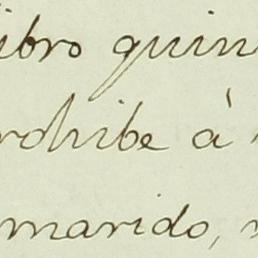 libro quin
rohibe à
marido,